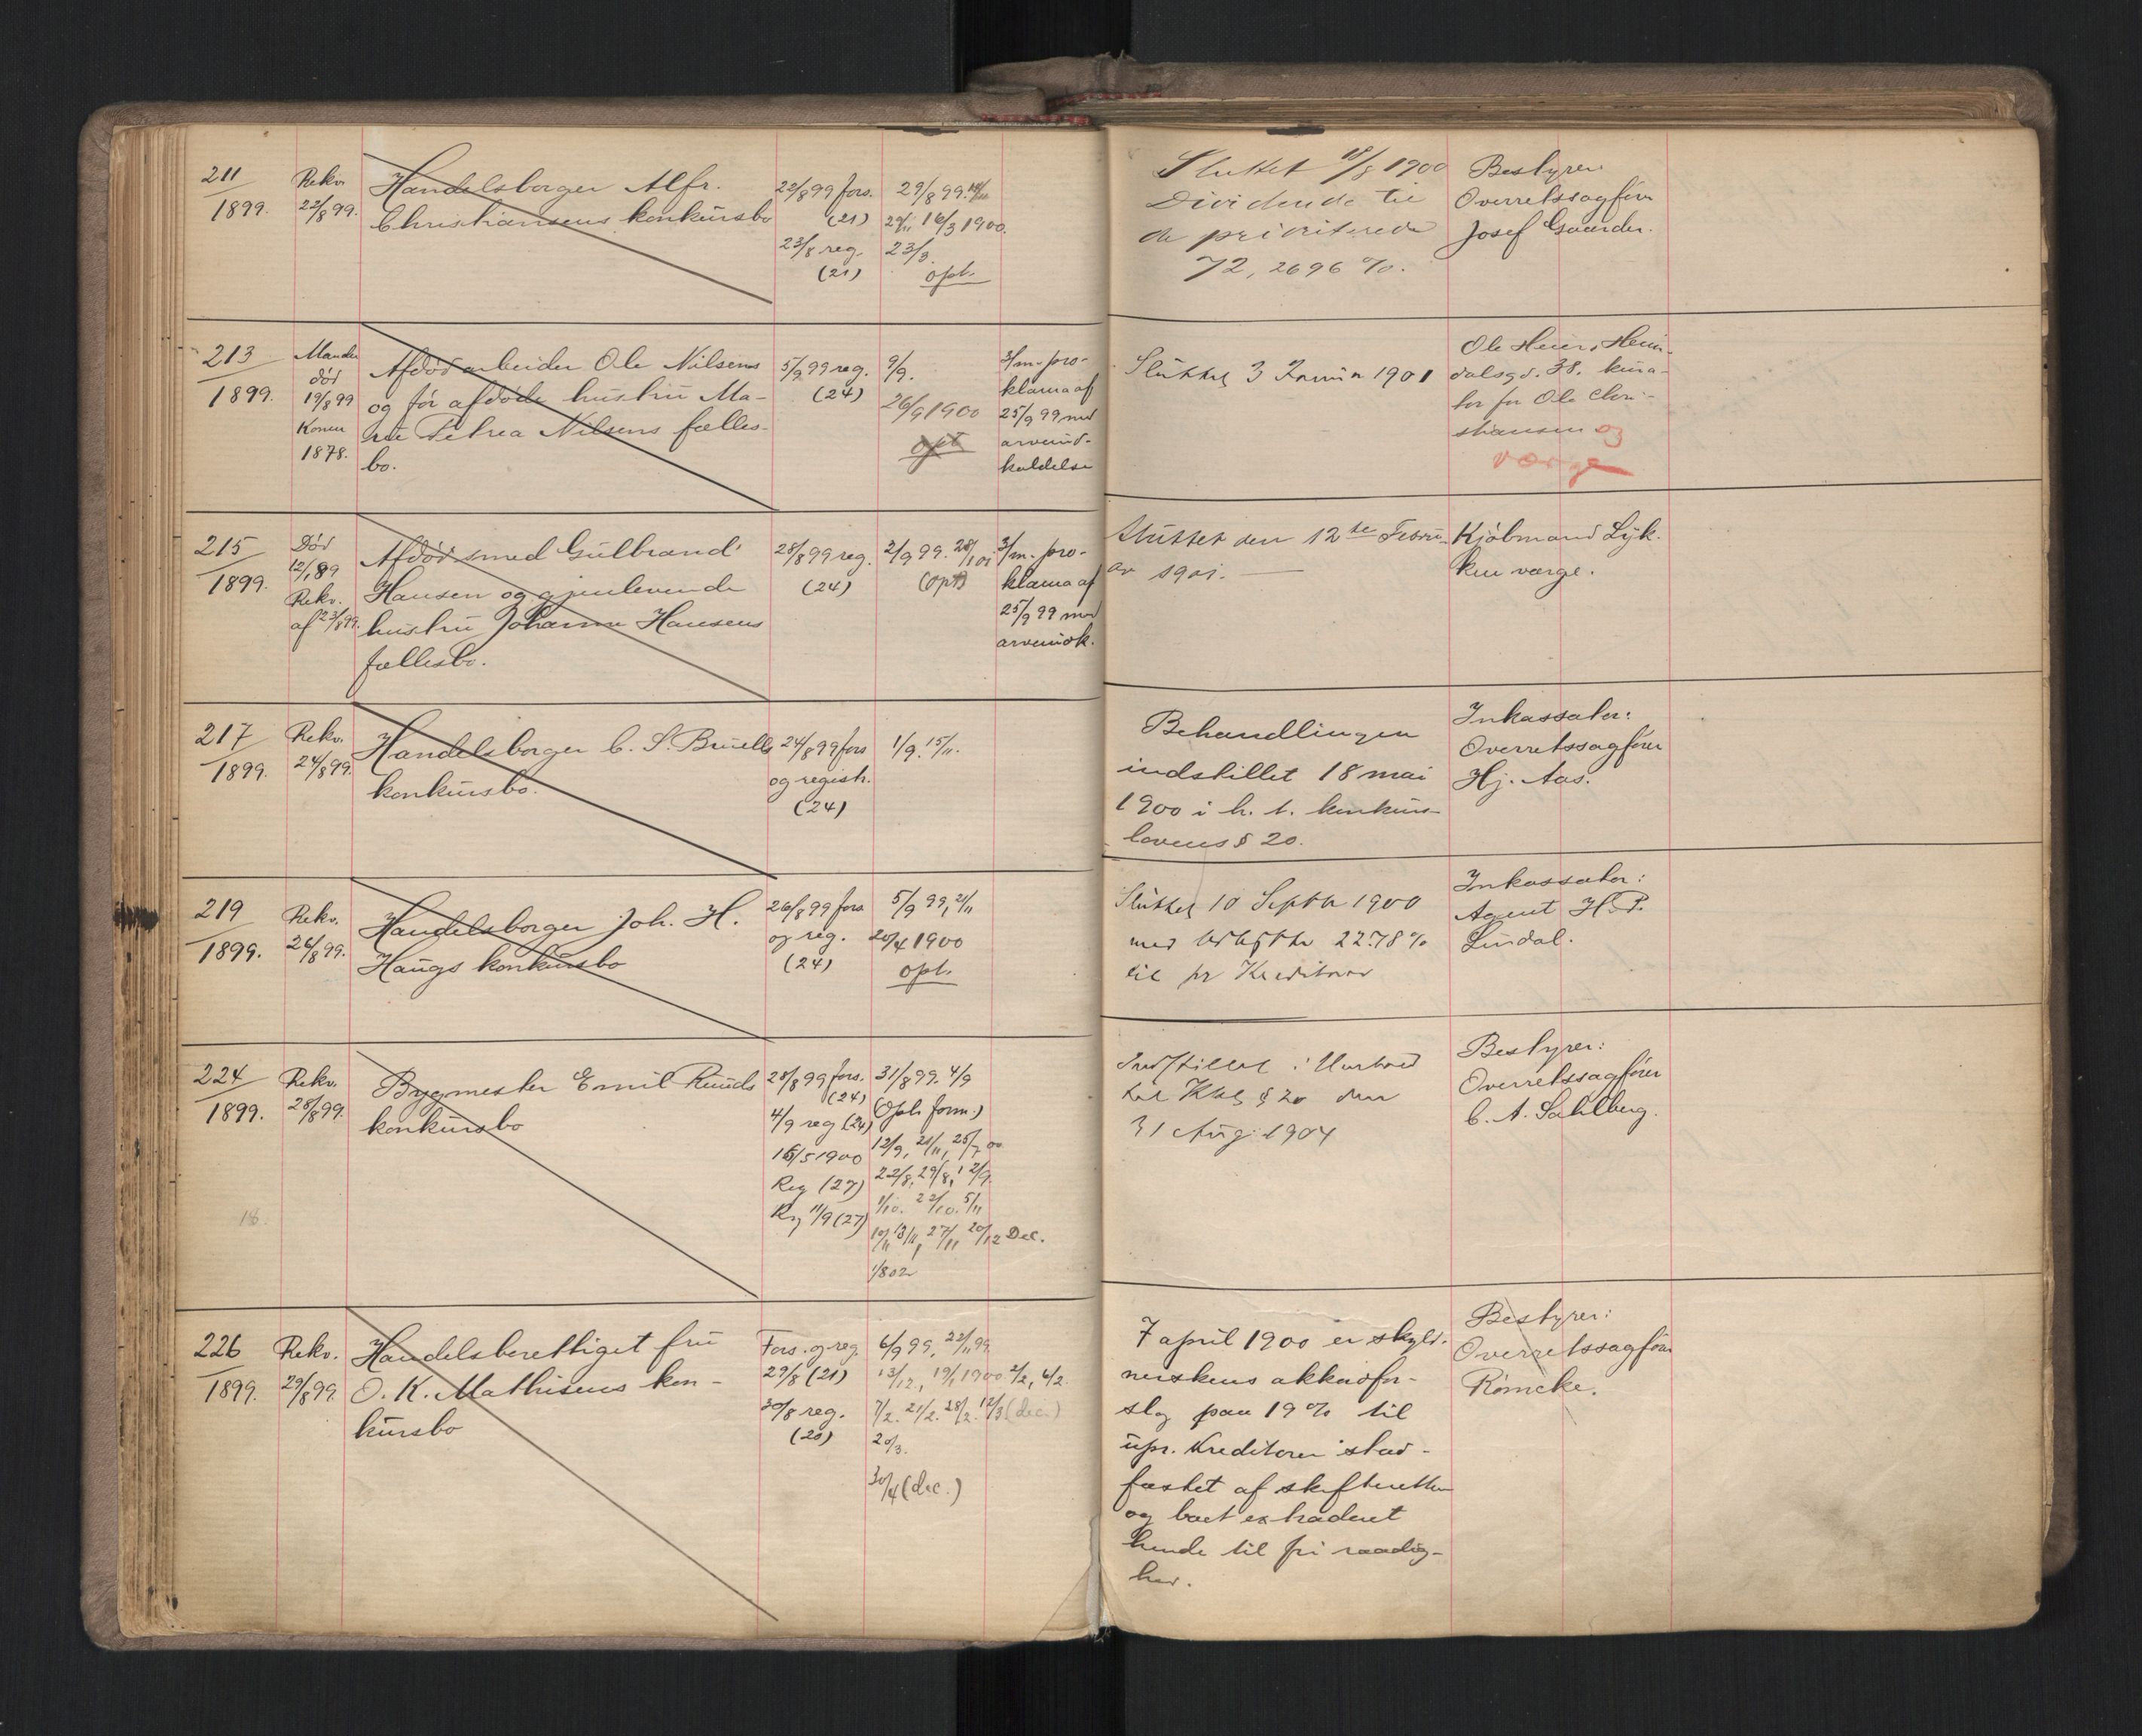 211
1899.
Rekv.
22/8 99.
Handelsborger Alfr.
Christiansens konkursbo
22/8 99 fors.
(21)
23/8 reg.
(21)
29/8 99.
29/11 16/3 1900.
23/3.
opt.
Sluttet 18/8 1900
Dividende til
de prioriterede
72,2696 %.
Bestyrer
Overretssagfører
Josef Gaarder.
213
1899.
Manden
död
19/8 99
Konen
1878.
Afdöd arbeider Ole Nilsens
og før afdöde hustru Ma-
rie Petrea Nilsens fælles-
bo.
5/9 99 reg.
(24)
9/9.
26/9 1900
opt
3/m. pro-
klama af
25/9 99 med
arveind-
kaldelse
Sluttet 3 Januar 1901
Ole Heier, Heim-
dalsgd. 38. kura-
tor for Ole Chri-
stiansen og
værge
215
1899.
Död
12/1 89
Rekv.
af 23/8 99.
Afdöd smed Gulbrand
Hansen og gjenlevende
hustru Johanne Hansens
fællesbo.
28/8 99 reg.
(24)
2/9 99. 28/1 01
(opt)
3/m. pro-
klama af
25/9 99 med
arveindk.
Sluttet den 12te Febru-
ar 1901.
Kjöbmand Lyk-
ken værge.
217
1899.
Rekv.
24/8 99.
Handelsborger C. S. Bruells
konkursbo.
24/8 99 fors
og registr.
(24)
1/9. 15/11.
Behandlingen
indstillet 18 mai
1900 i h. t. konkurs-
lovens § 20.
Inkassator:
Overretssagfører
Hj. Aas.
219
1899.
Rekv.
26/8 99.
Handelsborger Joh. H.
Haugs konkursbo
26/8 99 fors
og reg.
(24)
5/9 99, 2/11
20/4 1900
opt.
Sluttet 10 Septbr 1900
med 22.78 %
til pr Kreditorer
Inkassator:
Agent H. P.
Lindal.
224
1899.
Rekv.
28/8 99.
Bygmester Emil Ruuds
konkursbo
28/8 99 fors.
(24)
4/9 reg (24)
15/5 1900
Reg (27)
Reg 11/9 (27)
31/8 99. 4/9
(Opt. form.)
12/9, 21/11, 25/7 00
22/8, 29/8, 12/9.
1/10. 22/10. 5/11
10/11 13/11, 27/11 20/12 Dec.
1/8 02
Indstillet i Henhold
til Kkl § 20 den
31 Aug. 1904
Bestyrer:
Overretssagfører
C. A. Sahlberg.
18.
226
1899.
Rekv.
29/8 99.
Handelsberettiget fru
O. K. Mathisens kon-
kursbo
Fors. og reg.
29/8 (21)
30/8 reg.
(20)
6/9 99, 22/11 99.
13/12., 19/1 1900 2/2, 6/2.
7/2. 21/2. 28/2. 12/3 (dec.)
20/3.
30/4 (dec.)
7 april 1900 er skyld-
nerskens akkordfor-
slag paa 19 % til
upr. kreditorer stad-
fæstet af skifteretten
og boet extraderet
hende til fri raadig-
hed.
Bestyrer:
Overretssagfører
Römcke.